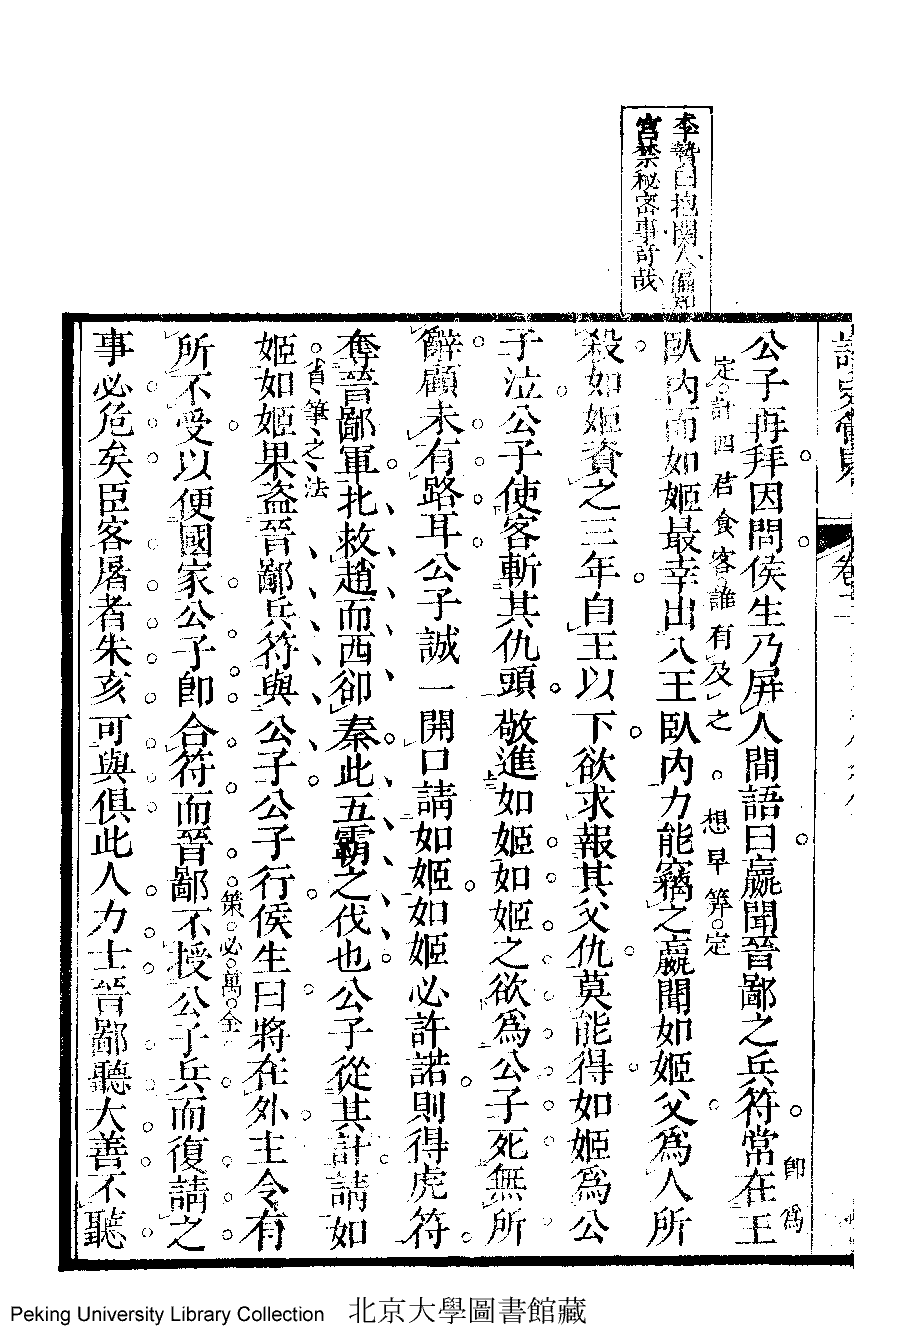 李贄曰抱關人偏知
宮禁秘密事奇哉
公子再拜因問侯生乃屏人間語曰嬴聞晉鄙之兵符常在王
即為
定計四君食客誰有及之
想早筭定
臥內而如姬最幸出入王臥內力能竊之嬴聞如姬父為人所
殺如姬資之三年自王以下欲求報其父仇莫能得如姬為公
子泣公子使客斬其仇頭敬進如姬如姬之欲為公子死無所
辭顧未有路耳公子誠一開口請如姬如姬必許諾則得虎符
奪晉鄙軍北救趙而西卻秦此五霸之伐也公子從其計請如
省筆之法
姬如姬果盜晉鄙兵符與公子公子行侯生曰將在外主令有
策必萬全
所不受以便國家公子卽合符而晉鄙不授公子兵而復請之
事必危矣臣客屠者朱亥可與俱此人力士晉鄙聽大善不聽
Peking University Library Collection 北京大學圖書館藏